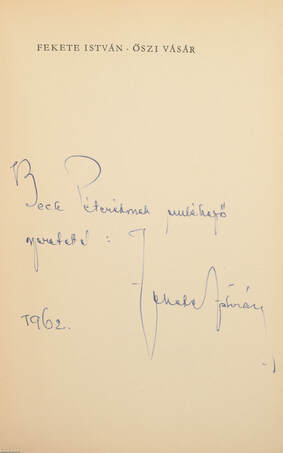 FEKETE ISTVÁN · ŐSZI VÁSÁR
Beck Péteréknek emlékező
szeretettel :
Fekete István
1962.